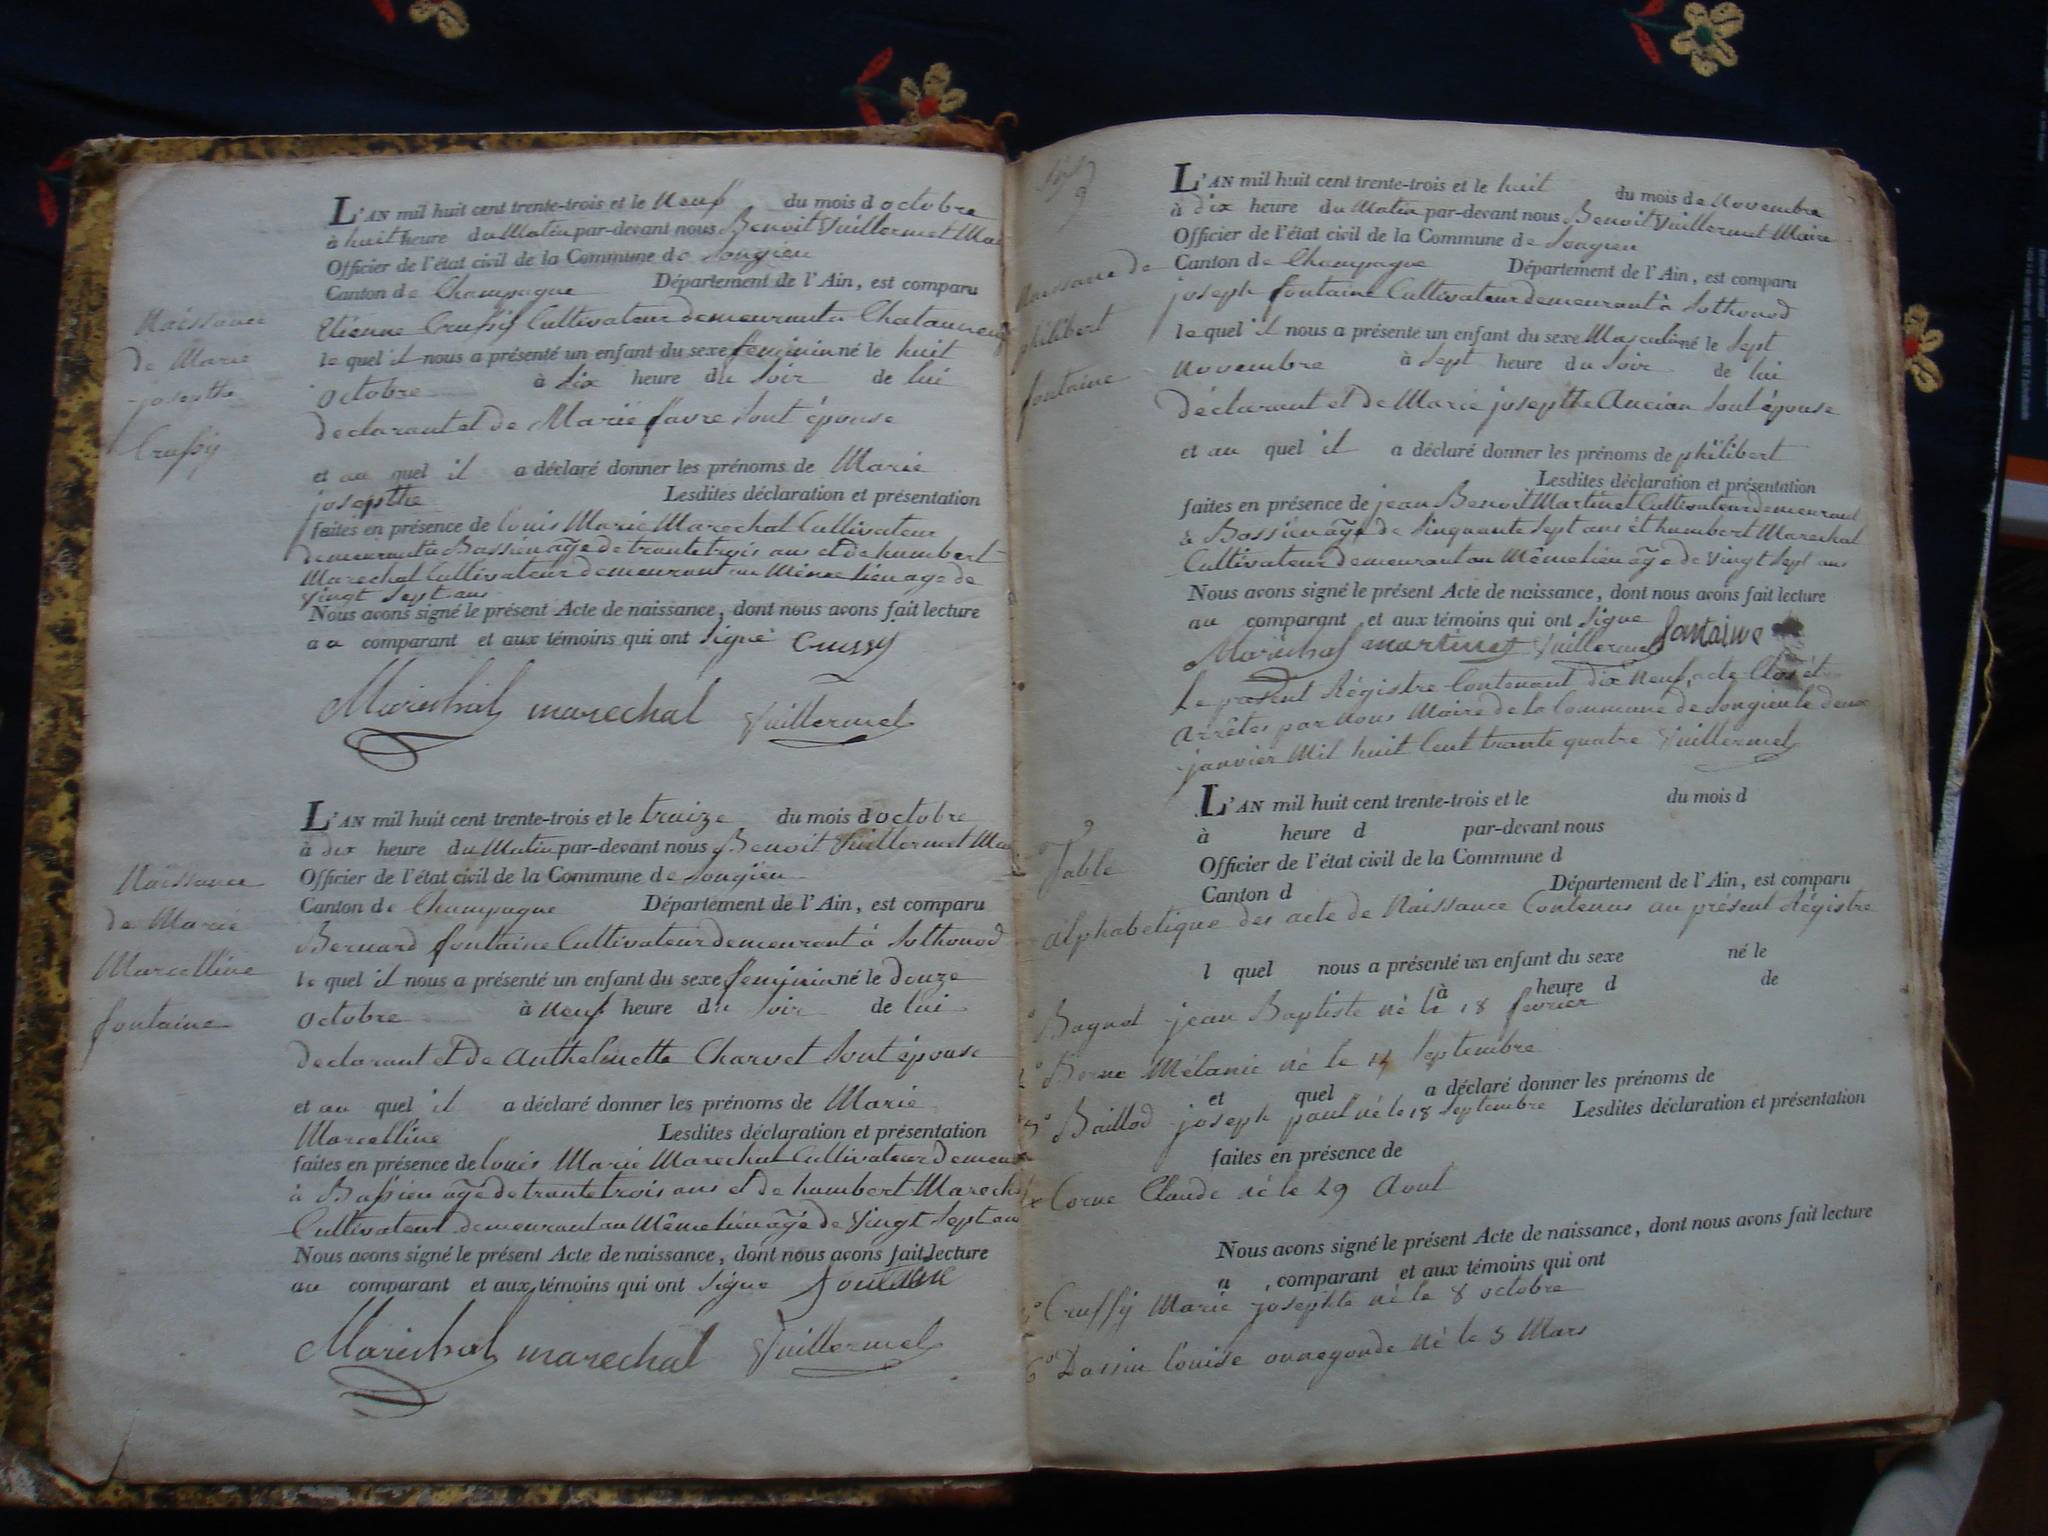 Naissance
de Marie
josepthe
Crussy
L'AN mil huit cent trente-trois et le neuf du mois d octobre
à huit heure du Matin par-devant nous Benoit Vuillermet Mai
Officier de l'état civil de la Commune de Songieu
Canton de Champagne Département de l'Ain, est comparu
Etienne Crussy Cultivateur demeurant a
le quel il nous a présenté un enfant du sexe feminin né le huit
octobre à dix heure du soir de lui
declarant et de Marie favre sont épouse
et au quel il a déclaré donner les prénoms de Marie
josepthe Lesdites déclaration et présentation
faites en présence de louis Marie Marechal Cultivateur
demeurant a Bassieu agé de trante trois ans et de humbert
Marechal Cultivateur demeurant au Même lieu age de
vingt sept ans
Nous avons signé le présent Acte de naissance, dont nous avons fait lecture
au comparant et aux témoins qui ont signé Crussy
Maréchal marechal Vuillermet
Naissance
de Marie
Marcelline
fontaine
L'AN mil huit cent trente-trois et le traize du mois d octobre
à dix heure du Matin par-devant nous Benoit Vuillermet Mai
Officier de l'état civil de la Commune de Songieu
Canton de Champagne Département de l'Ain, est comparu
Bernard fontaine Cultivateur demeurant à Sothonod
le quel il nous a présenté un enfant du sexe feminin né le douze
octobre à neuf heure du soir de lui
declarant et de Anthelmette Charvet sont épouse
et au quel il a déclaré donner les prénoms de Marie
Marcelline Lesdites déclaration et présentation
faites en présence de louis Marie Marechal Cultivateur demeu
à Bassieu agé de trante trois ans et de humbert Marech
Cultivateur demeurant au Même lieu agé de vingt sept an
Nous avons signé le présent Acte de naissance, dont nous avons fait lecture
au comparant et aux témoins qui ont signe fontaine
Maréchal marechal Vuillermet
Naissance de
philibert
fontaine
L'AN mil huit cent trente-trois et le huit du mois de Novembre
à dix heure du Matin par-devant nous Benoit Vuillermet Maire
Officier de l'état civil de la Commune de Songieu
Canton de Champagne Département de l'Ain, est comparu
joseph fontaine Cultivateur demeurant à Sothonod
le quel il nous a présenté un enfant du sexe Masculin né le sept
Novembre à sept heure du soir de lui
déclarant et de Marie josepthe Ancian sont épouse
et au quel il a déclaré donner les prénoms de philibert
Lesdites déclaration et présentation
faites en présence de jean Benoit Martinet Cultivateur demeurant
à Bossieu agé de sinquante sept ans et humbert Marechal
Cultivateur demeurant au Même lieu âgé de vingt sept ans
Nous avons signé le présent Acte de naissance, dont nous avons fait lecture
au comparant et aux témoins qui ont signe fontaine
Maréchal martinet Vuillermet
Le présent Régistre Contenant dix neuf acte Clos ét
arrêtés par nous Maire de la Commune de Songieu le deux
janvier Mil huit Cent trante quatre Vuillermet
L'AN mil huit cent trente-trois et le du mois d
à heure d par-devant nous
Officier de l'état civil de la Commune d
Table
Canton d Département de l'Ain, est comparu
alphabetique des acte de Naissance Contenus au présent Régistre
l quel nous a présenté un enfant du sexe né le
à heure d de
Bagnet jean Baptiste né le 18 fevrier
2° Borne Mélanie né le 14 Septembre
et quel a déclaré donner les prénoms de
3° Baillod joseph paul né le 18 septembre Lesdites déclaration et présentation
faites en présence de
4° Corne Claude né le 29 Avril
Nous avons signé le présent Acte de naissance, dont nous avons fait lecture
a comparant et aux témoins qui ont
5° Crussy Marie josephte né le 8 octobre
6° Dassin Louise né le 5 Mars